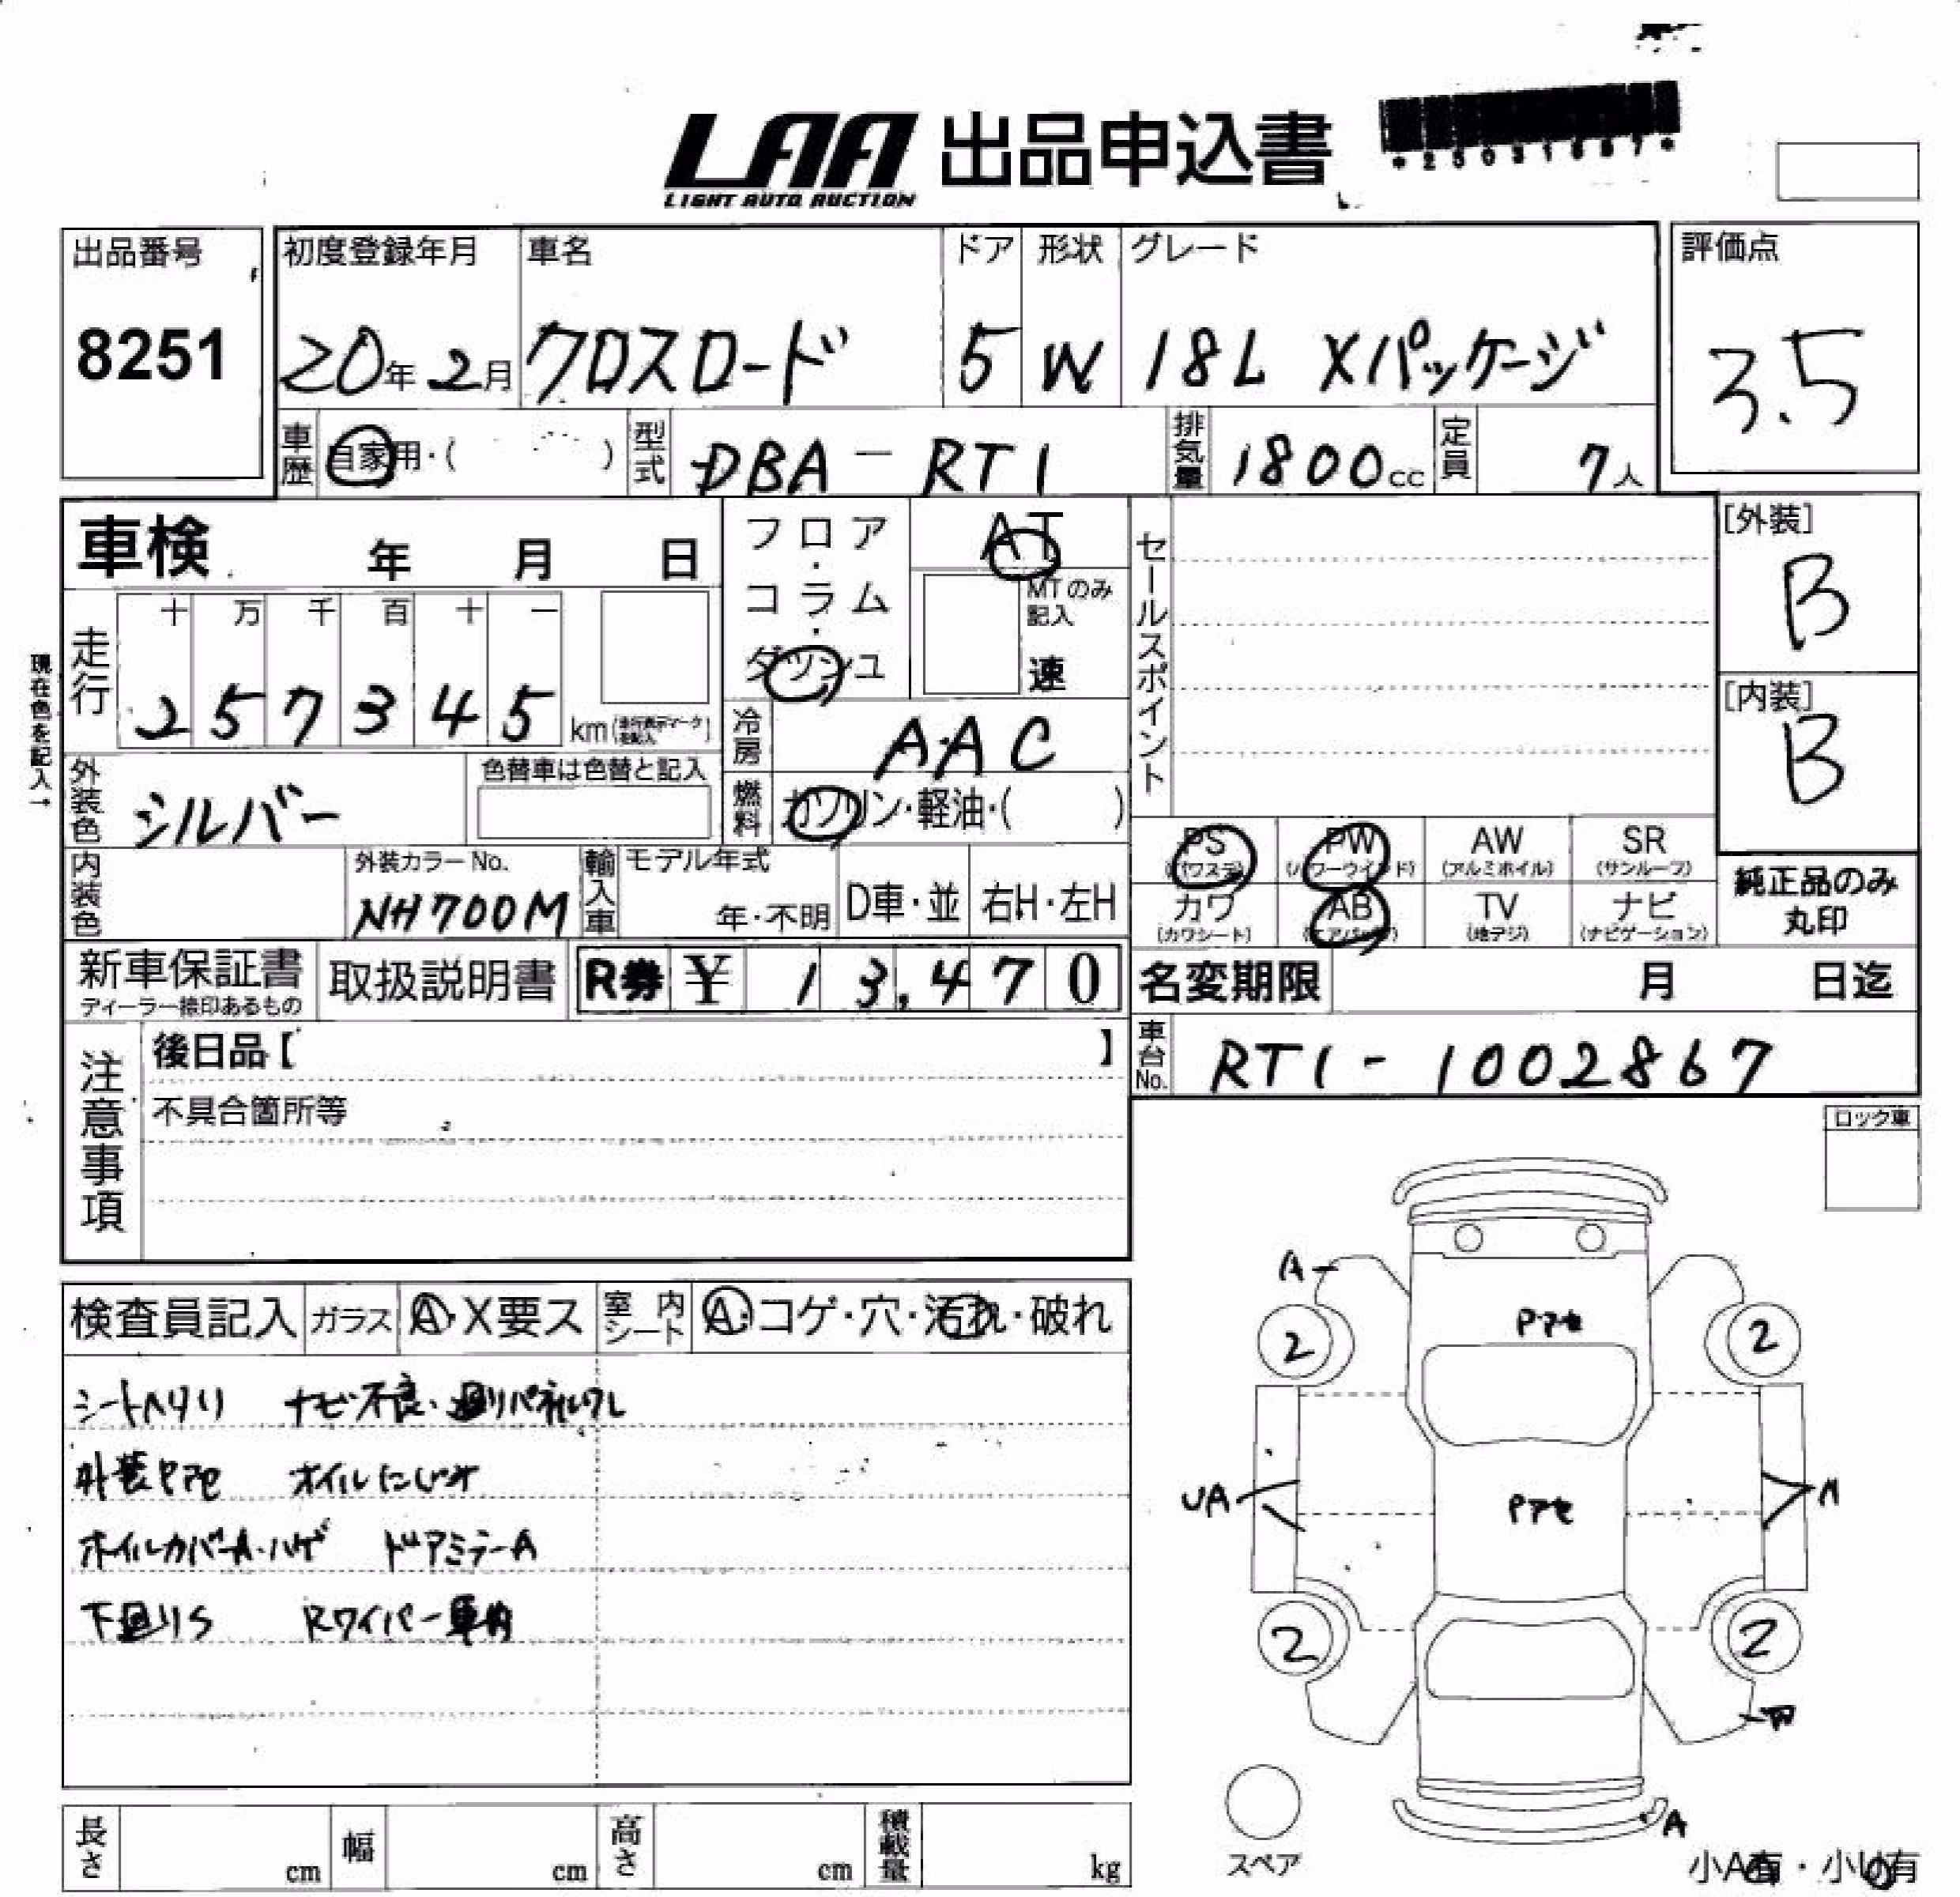 LAA 出品申込書
LIGHT AUTO AUCTION
*25031687*
出品番号
8251
初度登録年月 車名 ドア 形状 グレード 評価点
20年2月 クロスロード 5 W 18L Xパッケージ 3.5
車歴 自家用・( ) 型式 DBA-RT1 排気量 1800cc 定員 7人
車検 年 月 日
フロア・コラム・ダッシュ
AT
MTのみ記入
速
セールスポイント
[外装]
B
[内装]
B
現在色を記入→
走行
十 万 千 百 十 一
2 5 7 3 4 5 km
冷房 AAC
外装色 シルバー 色替車は色替と記入
燃料 ガソリン・軽油・( )
PS PW AW SR
(パワステ) (パワーウインド) (アルミホイル) (サンルーフ)
カワ AB TV ナビ
(カワシート) (エアバッグ) (地デジ) (ナビゲーション)
純正品のみ
丸印
内装色 外装カラーNo. NH700M
輸入車 モデル年式 年・不明 D車・並 右H・左H
新車保証書 取扱説明書 R券 ¥ 13,470
ディーラー捺印あるもの
名変期限 月 日迄
車台No. RT1-1002867
注意事項
後日品【 】
不具合箇所等
ロック車
検査員記入 ガラス A・X要ス 室内シート A・コゲ・穴・汚れ・破れ
シートヘタリ ナビ不良・廻りパネルワレ
外装Pアセ オイルにじみ
ホイルカバーA・ハゲ ドアミラーA
下廻りS Rワイパー車内
A
Pアセ
2 2
UA Pアセ A
2 2
A
スペア
小A有・小U有
長さ cm 幅 cm 高さ cm 積載量 kg